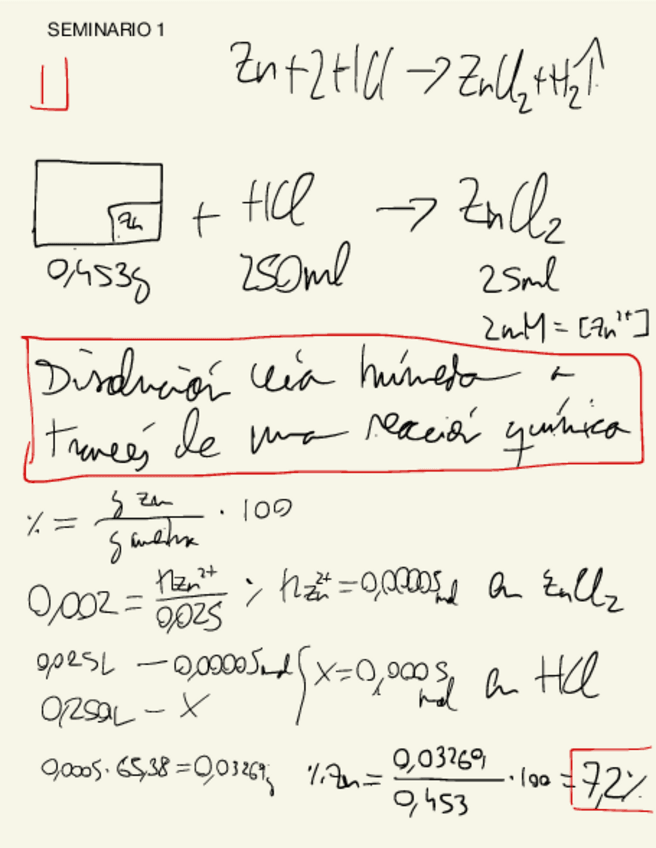 SEMINARIO 1
1
Zn + 2HCl → ZnCl₂ + H₂↑
Zn
+ HCl → ZnCl₂
0,453g 250ml 25ml
2mM = [Zn²⁺]
Disolución vía húmeda a
través de una reacción química
% = g Zn / g muestra · 100
0,002 = nZn²⁺ / 0,025 ; nZn²⁺ = 0,00005 mol en ZnCl₂
0,025L — 0,00005 mol
0,250L — X
X = 0,0005 mol en HCl
0,0005 · 65,38 = 0,0326g
% Zn = 0,0326g / 0,453 · 100 = 7,2%